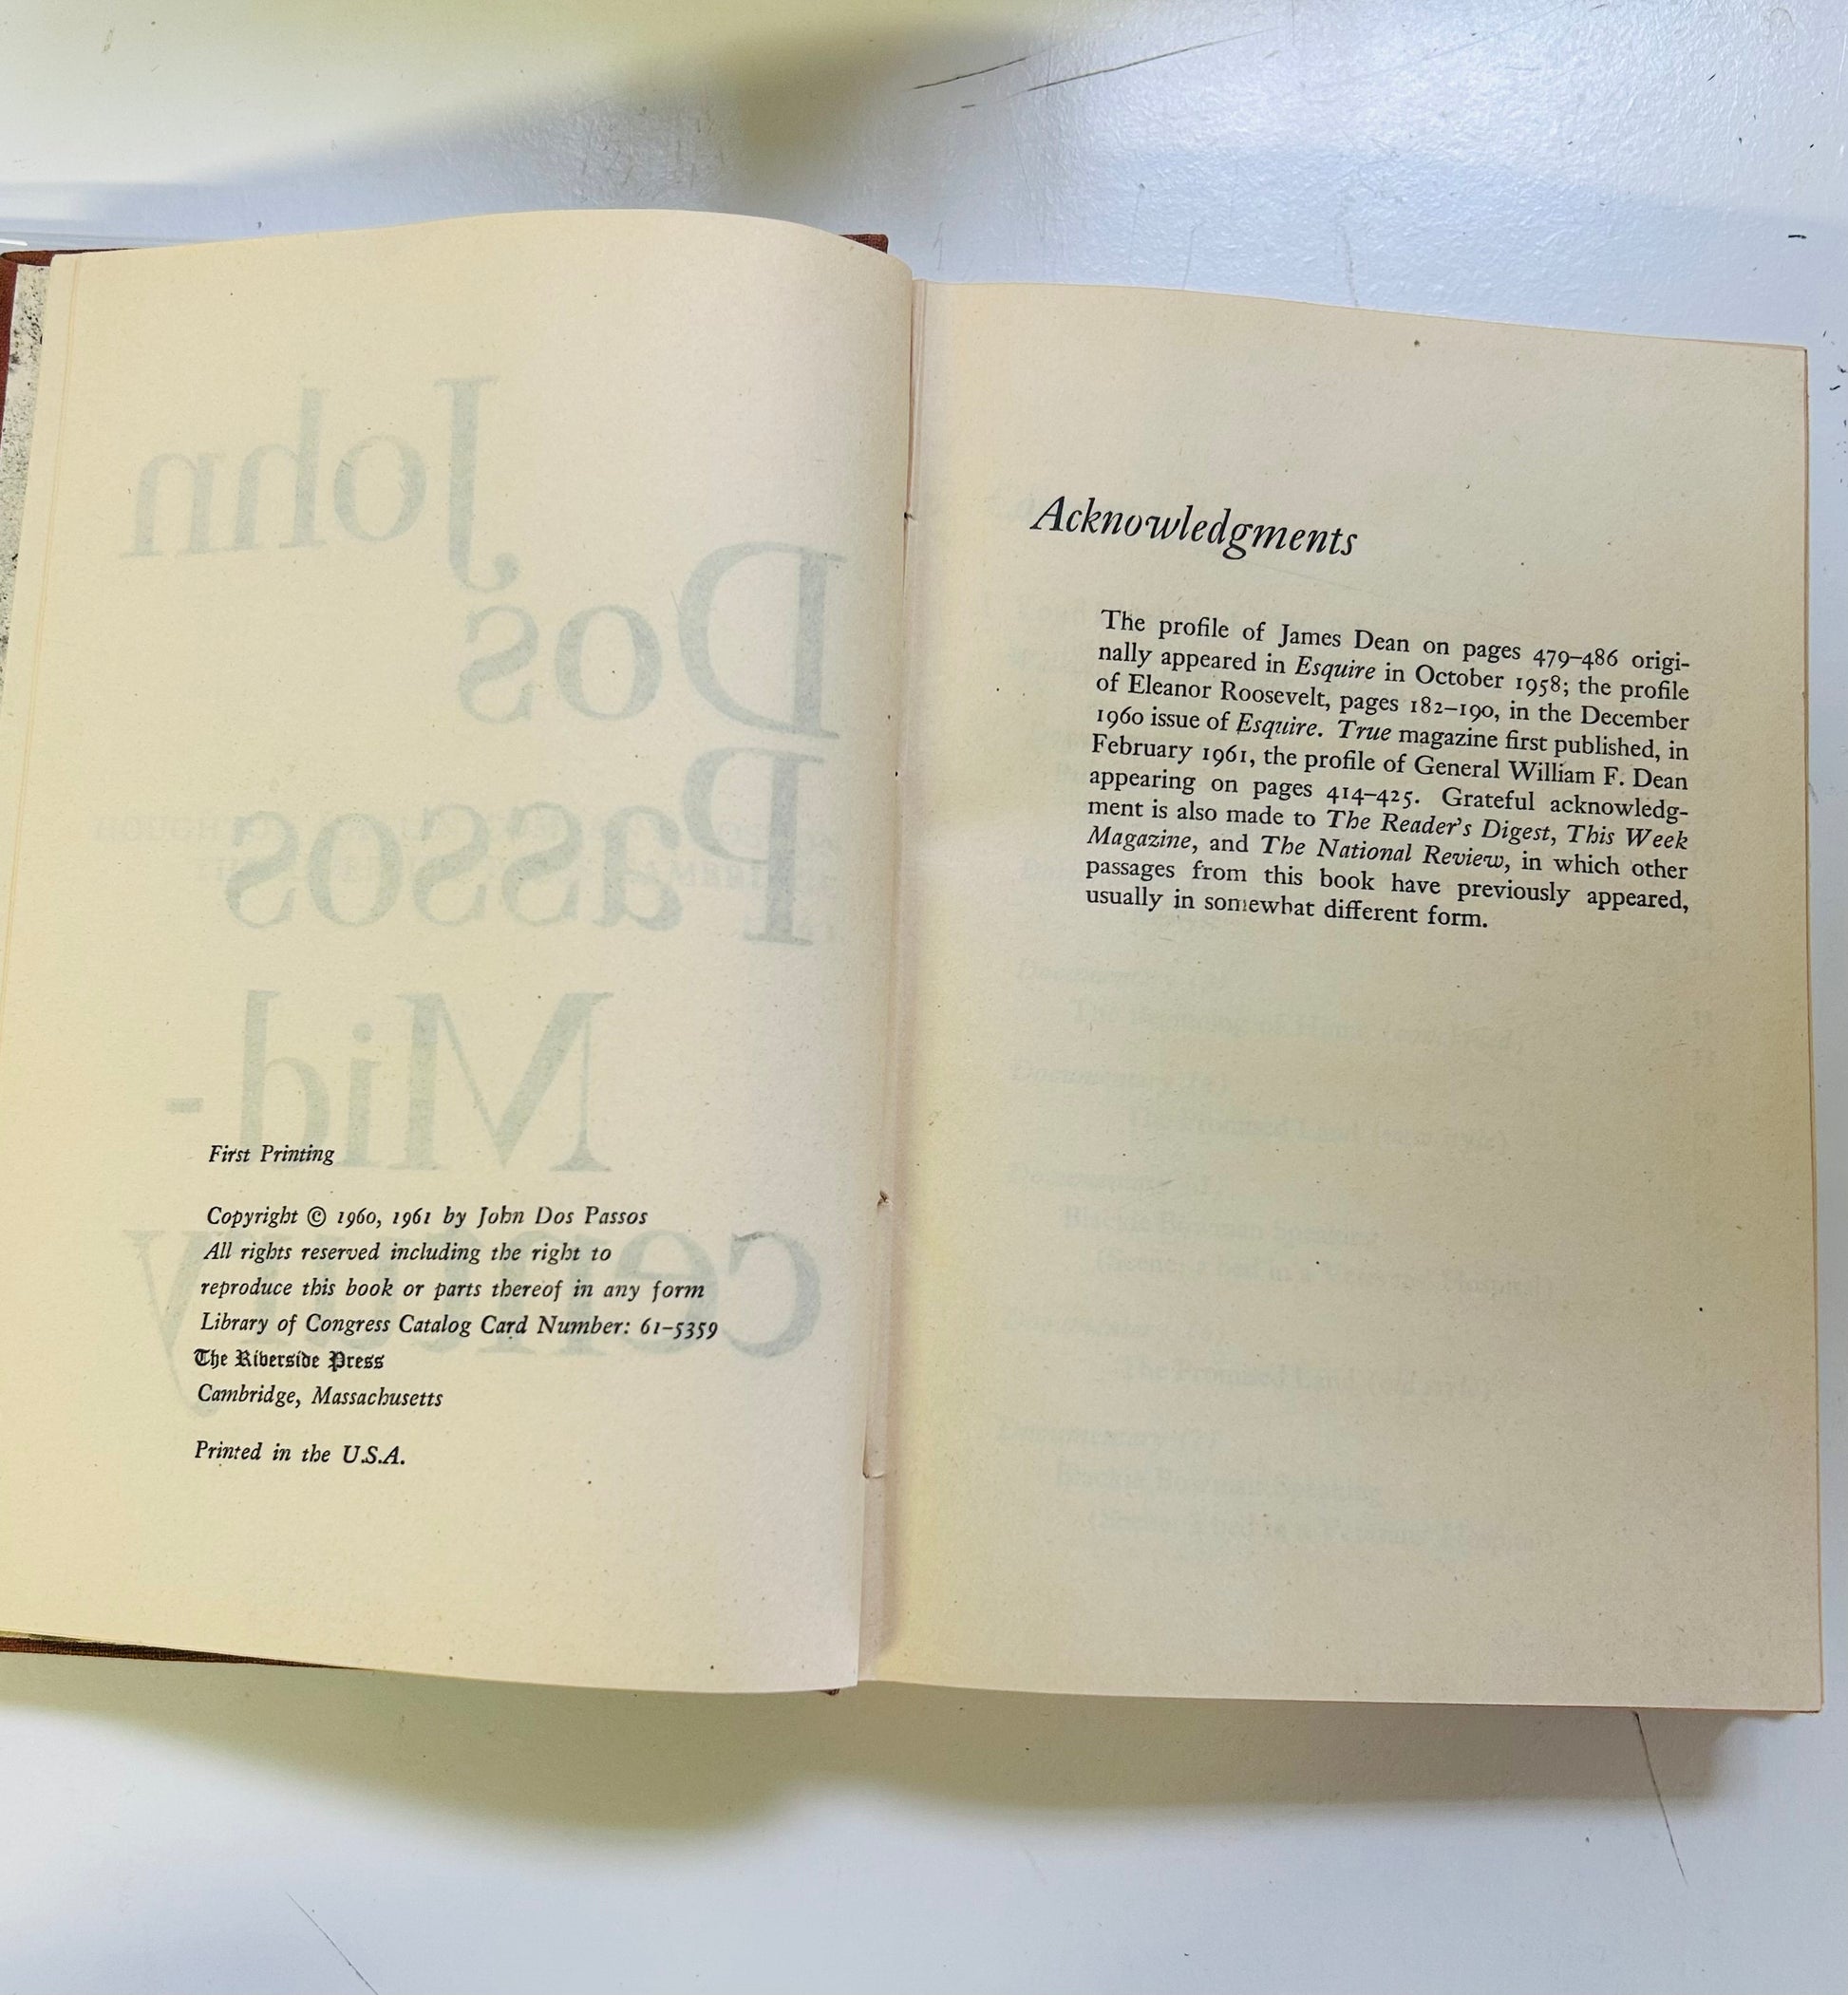 John
Dos
Passos
Mid-
century
First Printing
Copyright © 1960, 1961 by John Dos Passos
All rights reserved including the right to
reproduce this book or parts thereof in any form
Library of Congress Catalog Card Number: 61–5359
The Riverside Press
Cambridge, Massachusetts
Printed in the U.S.A.
Acknowledgments
The profile of James Dean on pages 479–486 origi-
nally appeared in Esquire in October 1958; the profile
of Eleanor Roosevelt, pages 182–190, in the December
1960 issue of Esquire. True magazine first published, in
February 1961, the profile of General William F. Dean
appearing on pages 414–425. Grateful acknowledg-
ment is also made to The Reader's Digest, This Week
Magazine, and The National Review, in which other
passages from this book have previously appeared,
usually in somewhat different form.